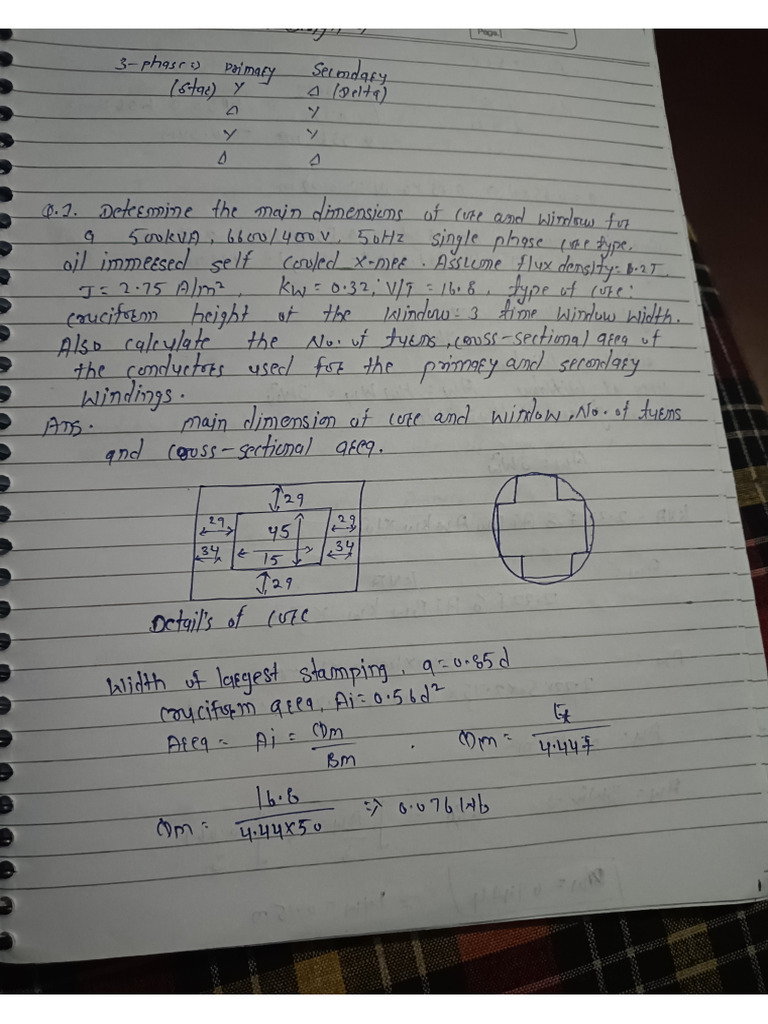 Page.
3-phase:) Primary Secondary
(Star) Y Δ (Delta)
Δ Y
Y Y
Δ Δ
Q.1. Determine the main dimensions of core and window for
a 500kVA, 6600/400V, 50Hz single phase core type,
oil immersed self cooled x-mer. Assume flux density = 1.2T.
J = 2.75 A/m², Kw = 0.32, V/T = 16.8, type of core:
cruciform height of the window = 3 time window width.
Also calculate the No. of turns, cross-sectional area of
the conductors used for the primary and secondary
windings.
Ans. main dimension of core and window, No. of turns
and cross-sectional area.
29
29 45 29
34 15 34
29
Detail's of core
Width of largest stamping, a = 0.85d
cruciform area, Ai = 0.56d²
Area = Ai = Φm/Bm . Φm = Et/4.44f
Φm = 16.8/4.44×50 => 0.076Wb